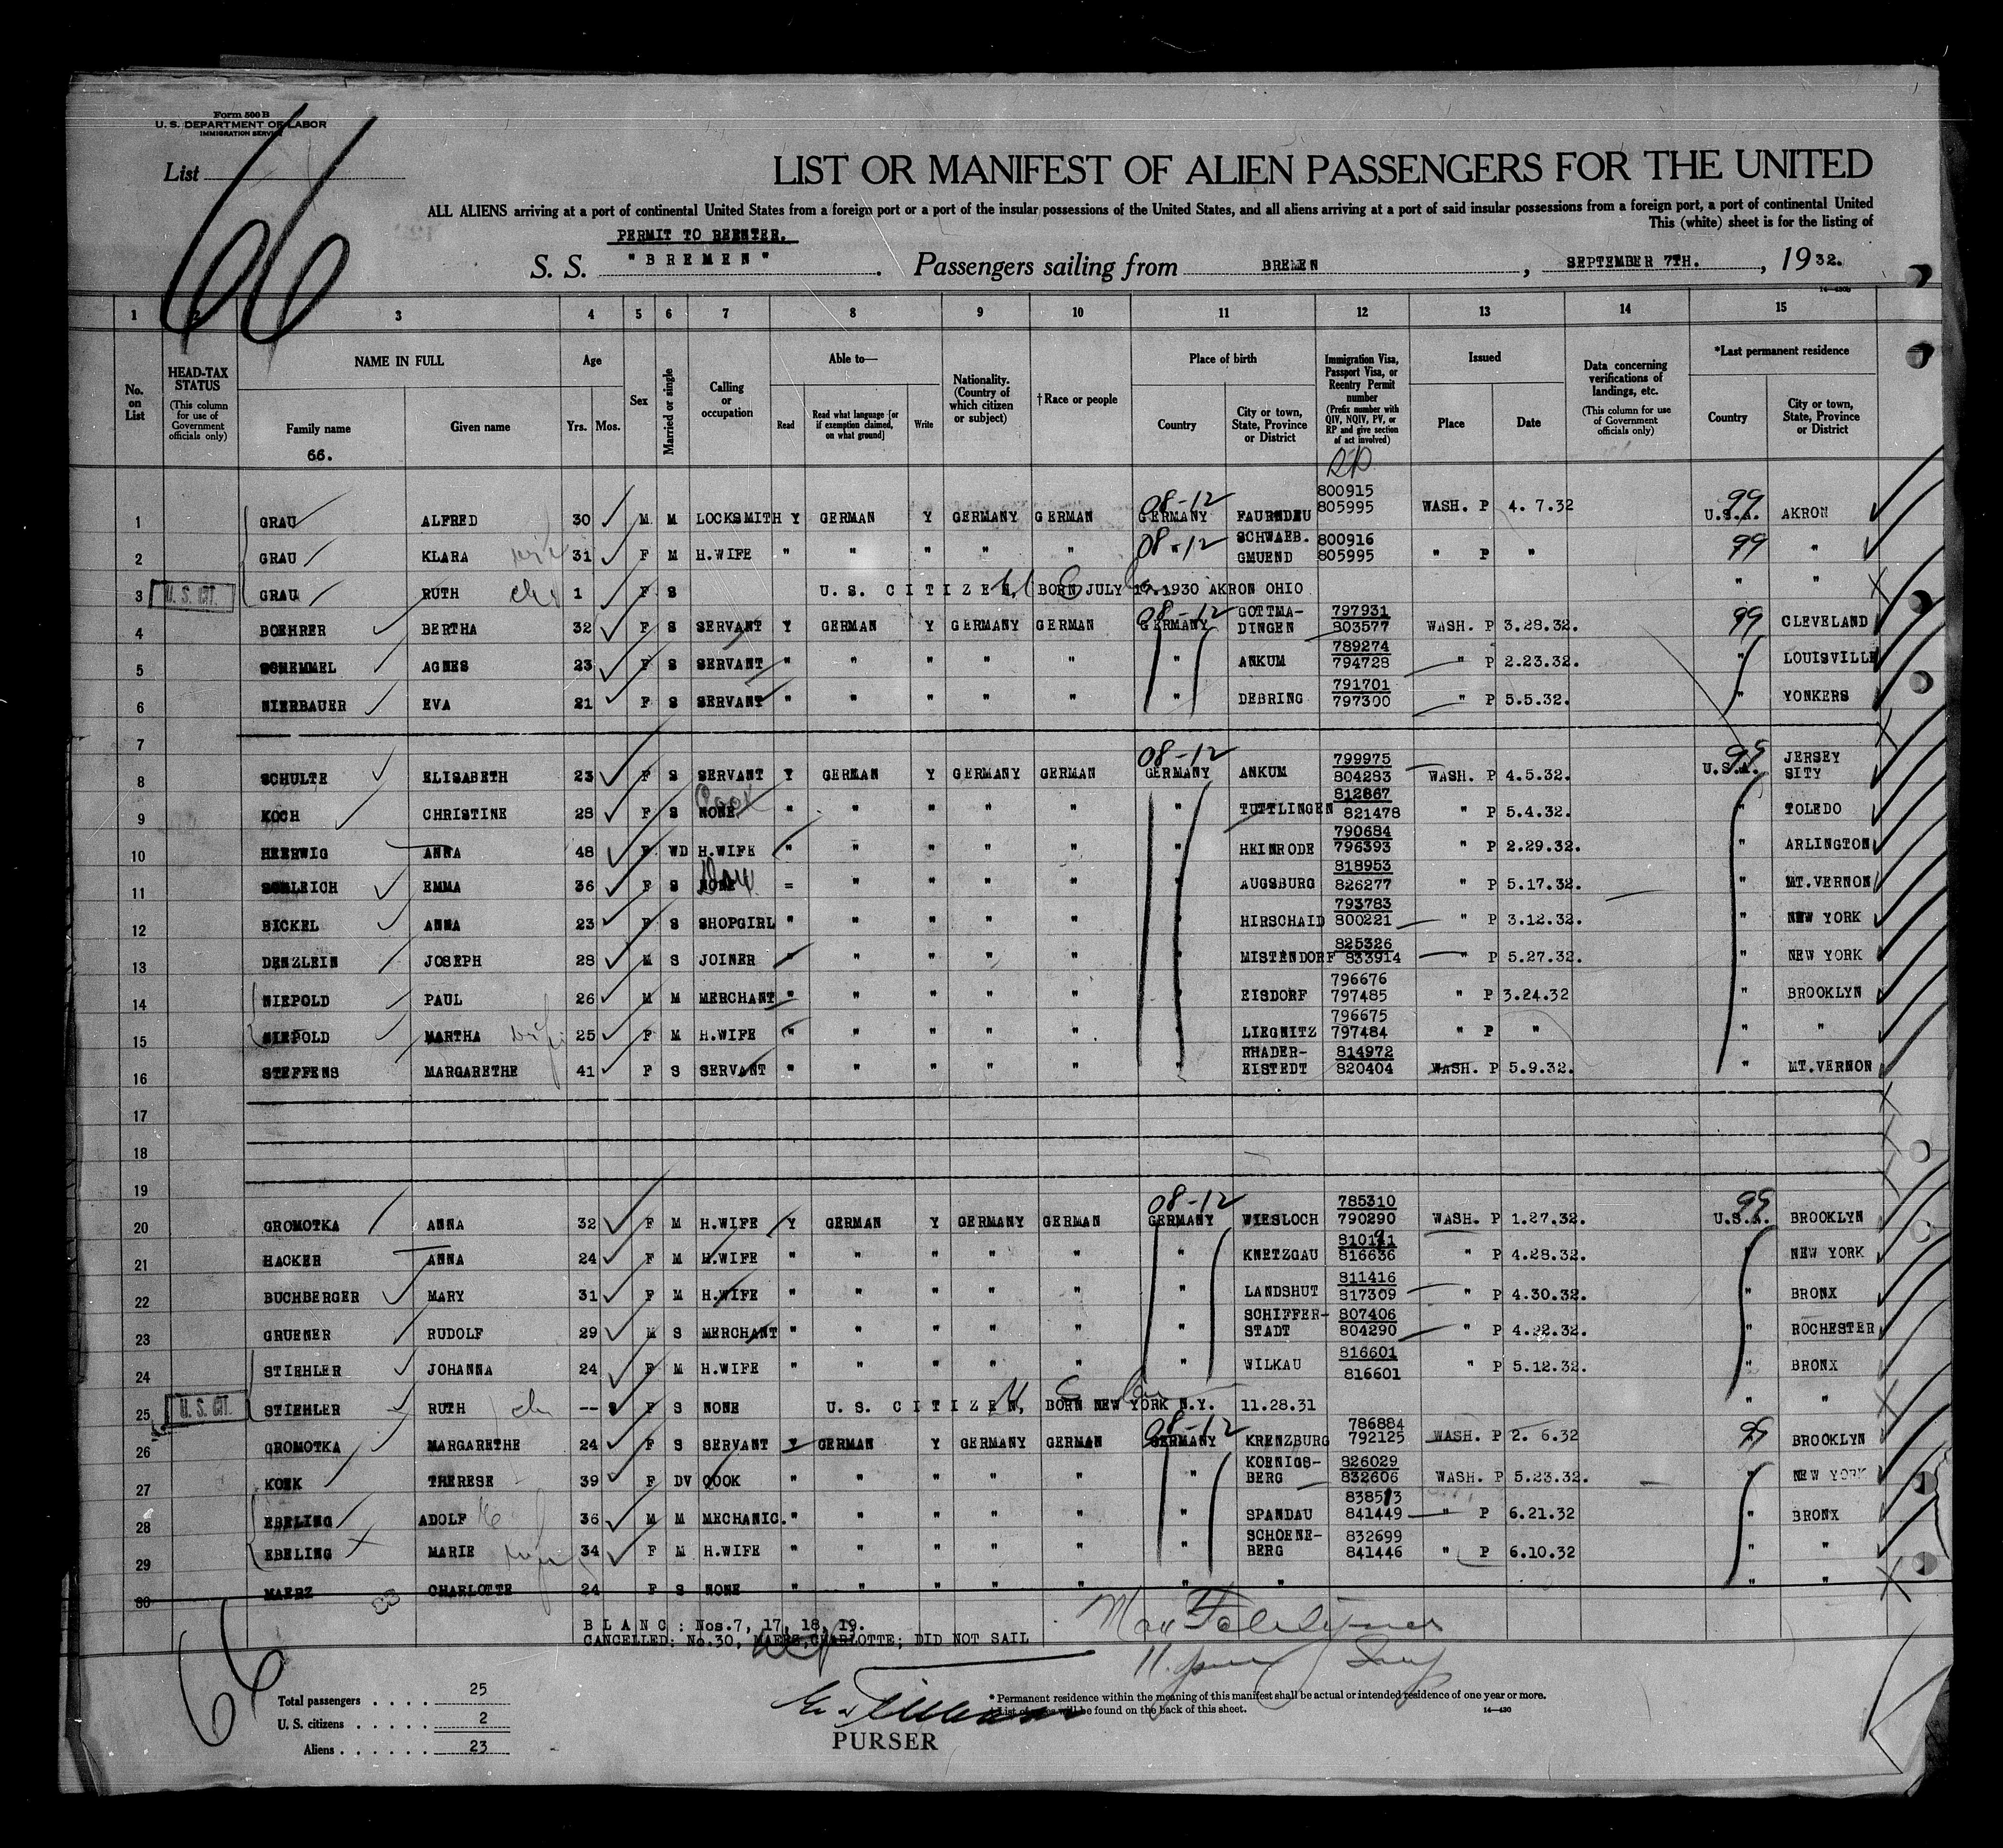 Form 500 B
U. S. DEPARTMENT OF LABOR
IMMIGRATION SERVICE
List
66
LIST OR MANIFEST OF ALIEN PASSENGERS FOR THE UNITED
ALL ALIENS arriving at a port of continental United States from a foreign port or a port of the insular possessions of the United States, and all aliens arriving at a port of said insular possessions from a foreign port, a port of continental United
This (white) sheet is for the listing of
PERMIT TO REENTER.
S. S. "BREMEN". Passengers sailing from BREMEN, SEPTEMBER 7TH., 1932.
1 2 3 4 5 6 7 8 9 10 11 12 13 14 15
No. on List
HEAD-TAX STATUS (This column for use of Government officials only)
NAME IN FULL Family name Given name
66.
Age Yrs. Mos.
Sex
Married or single
Calling or occupation
Able to— Read Read what language [or if exemption claimed, on what ground] Write
Nationality. (Country of which citizen or subject)
†Race or people
Place of birth Country City or town, State, Province or District
Immigration Visa, Passport Visa, or Reentry Permit number (Prefix number with QIV, NQIV, PV, or RP and give section of act involved)
RP
Issued Place Date
Data concerning verifications of landings, etc. (This column for use of Government officials only)
*Last permanent residence Country City or town, State, Province or District
1 GRAU ALFRED 30 M M LOCKSMITH Y GERMAN Y GERMANY GERMAN 08-12 GERMANY FAURNDEU 800915 805995 WASH. P 4. 7.32 99 U.S.A. AKRON
2 GRAU KLARA wife 31 F M H.WIFE " " " " " 08-12 " SCHWAEB. GMUEND 800916 805995 " P " 99 "
3 U.S. CIT. GRAU RUTH ch 1 F S U.S. CITIZEN, BORN JULY 19.1930 AKRON OHIO " "
4 BOEHRER BERTHA 32 F S SERVANT Y GERMAN Y GERMANY GERMAN 08-12 GERMANY GOTTMA-DINGEN 797931 803577 WASH. P 3.28.32. 99 CLEVELAND
5 SCHEMMEL AGNES 23 F S SERVANT " " " " " " ANKUM 789274 794728 " P 2.23.32. " LOUISVILLE
6 NIERBAUER EVA 21 F S SERVANT " " " " " " DEBRING 791701 797300 " P 5.5.32. " YONKERS
7
8 SCHULTE ELISABETH 23 F S SERVANT Y GERMAN Y GERMANY GERMAN 08-12 GERMANY ANKUM 799975 804283 WASH. P 4.5.32. 99 U.S.A. JERSEY SITY
9 KOCH CHRISTINE 28 F S NONE Cook " " " " " " TUTTLINGEN 812867 821478 " P 5.4.32. " TOLEDO
10 HEERWIG ANNA 48 F WD H.WIFE " " " " " " HEINRODE 790684 796393 " P 2.29.32. " ARLINGTON
11 SCHLEICH EMMA 36 F S NONE = " " " " " AUGSBURG 818953 826277 " P 5.17.32. " MT.VERNON
12 BICKEL ANNA 23 F S SHOPGIRL " " " " " " HIRSCHAID 793783 800221 " P 3.12.32. " NEW YORK
13 DENZLEIN JOSEPH 28 M S JOINER " " " " " " MISTENDORF 825326 833914 " P 5.27.32. " NEW YORK
14 NIEPOLD PAUL 26 M M MERCHANT " " " " " " EISDORF 796676 797485 " P 3.24.32 " BROOKLYN
15 NIEPOLD MARTHA wife 25 F M H.WIFE " " " " " " LIEGNITZ 796675 797484 " P " " "
16 STEFFENS MARGARETHE 41 F S SERVANT " " " " " " RHADER-EISTEDT 814972 820404 WASH. P 5.9.32. " MT.VERNON
17
18
19
20 GROMOTKA ANNA 32 F M H.WIFE Y GERMAN Y GERMANY GERMAN 08-12 GERMANY WIESLOCH 785310 790290 WASH. P 1.27.32. 99 U.S.A. BROOKLYN
21 HACKER ANNA 24 F M H.WIFE " " " " " " KNETZGAU 816636 " P 4.28.32. " NEW YORK
22 BUCHBERGER MARY 31 F M H.WIFE " " " " " " LANDSHUT 811416 817309 " P 4.30.32. " BRONX
23 GRUENER RUDOLF 29 M S MERCHANT " " " " " " SCHIFFER-STADT 807406 804290 " P 4.22.32. " ROCHESTER
24 STIEHLER JOHANNA 24 F M H.WIFE " " " " " " WILKAU 816601 816601 " P 5.12.32. " BRONX
25 U.S. CIT. STIEHLER RUTH ch -- F S NONE U.S. CITIZEN, BORN NEW YORK N.Y. 11.28.31 " "
26 GROMOTKA MARGARETHE 24 F S SERVANT Y GERMAN Y GERMANY GERMAN 08-12 GERMANY KRENZBURG 786884 792125 WASH. P 2. 6.32 99 BROOKLYN
27 KOEK THERESE 39 F DV COOK " " " " " " KOENIGS-BERG 826029 832606 WASH. P 5.23.32. " NEW YORK
28 EBELING ADOLF 36 M M MECHANIC. " " " " " " SPANDAU 838513 841449 " P 6.21.32 " BRONX
29 EBELING MARIE wife 34 F M H.WIFE " " " " " " SCHOENE-BERG 832699 841446 " P 6.10.32 " "
30 MAERZ CHARLOTTE 24 F S NONE " " " " " " " " "
BLANC: Nos.7, 17, 18, 19.
CANCELLED: No.30, MAERZ, CHARLOTTE; DID NOT SAIL
66
Total passengers . . . . 25
U. S. citizens . . . . . 2
Aliens . . . . . . 23
PURSER
* Permanent residence within the meaning of this manifest shall be actual or intended residence of one year or more.
† List of races will be found on the back of this sheet.
14—430